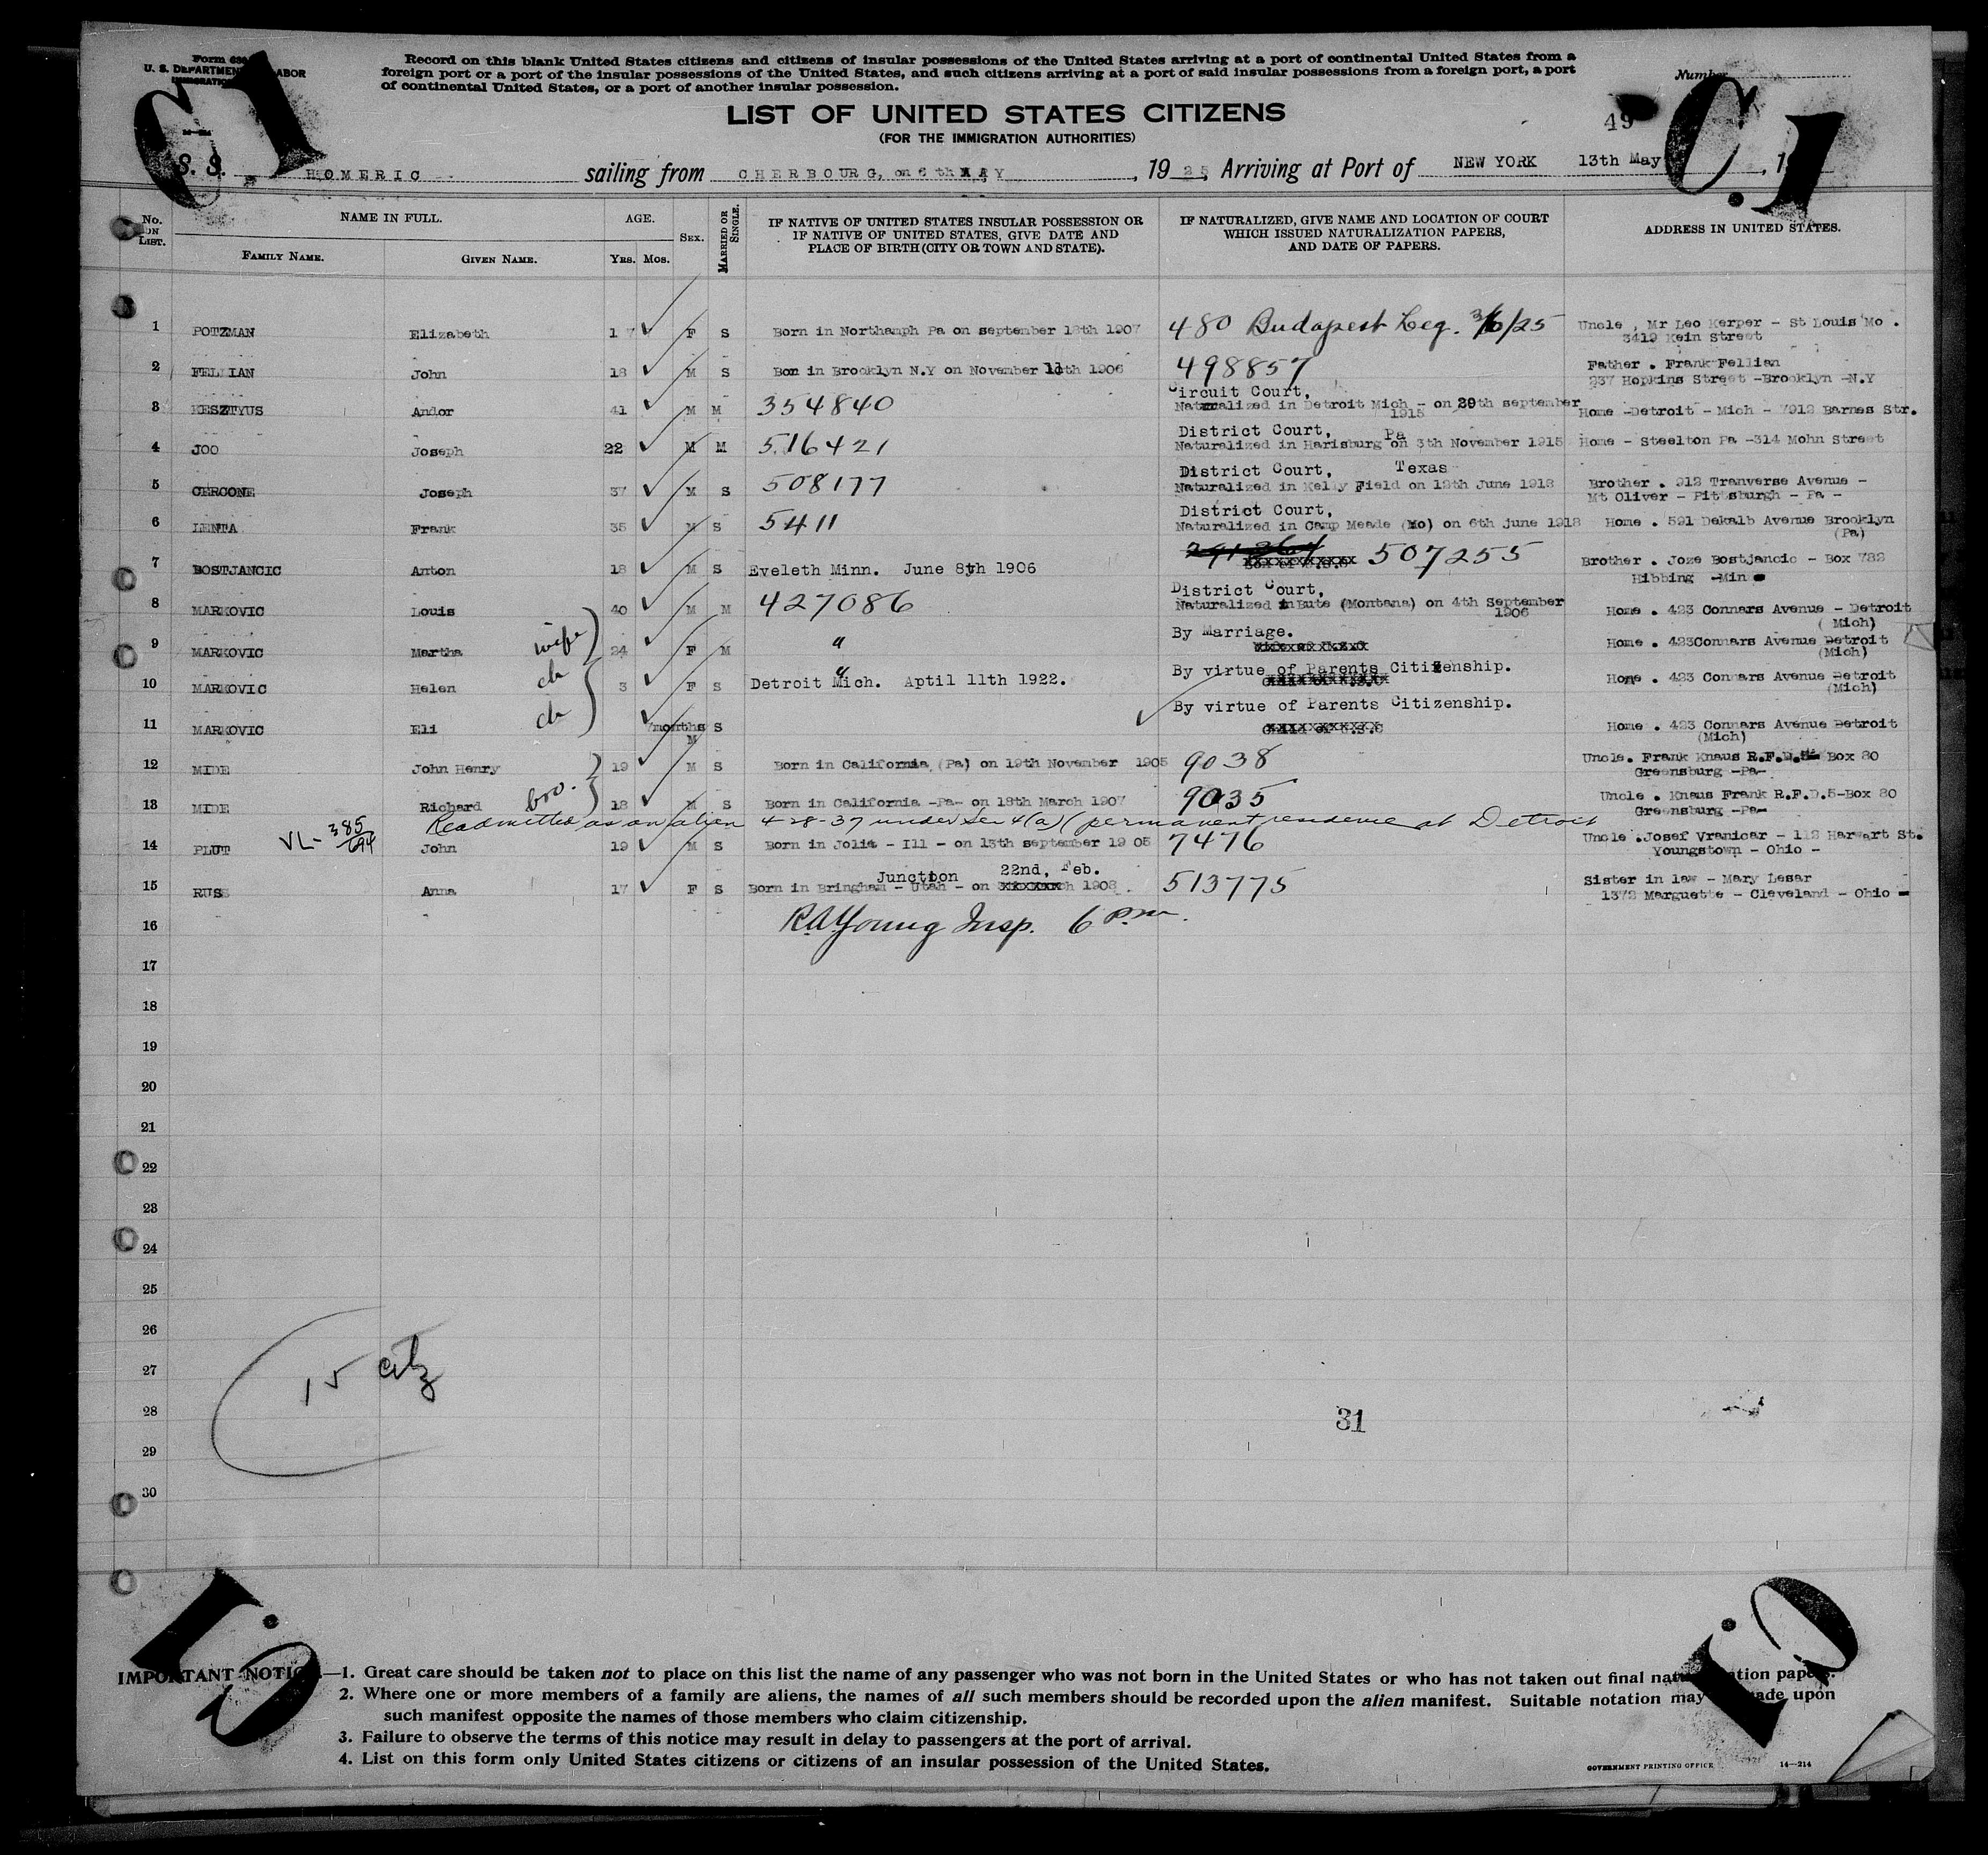 Form 630
U. S. DEPARTMENT LABOR
IMMIGRATION
Record on this blank United States citizens and citizens of insular possessions of the United States arriving at a port of continental United States from a
foreign port or a port of the insular possessions of the United States, and such citizens arriving at a port of said insular possessions from a foreign port, a port
of continental United States, or a port of another insular possession.
Number
C.1
C.1
LIST OF UNITED STATES CITIZENS
49
(FOR THE IMMIGRATION AUTHORITIES)
S. S. HOMERIC sailing from CHERBOURG, on 6 th MAY, 1925, Arriving at Port of NEW YORK 13th May, 1
No. ON LIST. NAME IN FULL. AGE. SEX. MARRIED OR SINGLE. IF NATIVE OF UNITED STATES INSULAR POSSESSION OR IF NATIVE OF UNITED STATES, GIVE DATE AND PLACE OF BIRTH (CITY OR TOWN AND STATE). IF NATURALIZED, GIVE NAME AND LOCATION OF COURT WHICH ISSUED NATURALIZATION PAPERS, AND DATE OF PAPERS. ADDRESS IN UNITED STATES.
FAMILY NAME. GIVEN NAME. YRS. MOS.
1 POTZMAN Elizabeth 17 F S Born in Northamph Pa on september 18th 1907 480 Budapest Leg. 3/10/25 Uncle , Mr Leo Kerper - St Louis Mo .
3419 Kein Street
2 FELLIAN John 18 M S Bon in Brooklyn N.Y on November 11th 1906 498857 Father . Frank Fellian
237 Hopkins Street -Brooklyn -N.Y
Circuit Court,
3 KESZTYUS Andor 41 M M 354840 Naturalized in Detroit Mich - on 29th september 1915 Home -Detroit - Mich - 7912 Barnes Str.
District Court, Pa
4 JOO Joseph 22 M M 516421 Naturalized in Harisburg on 3th November 1915 Home - Steelton Pa -314 Mohn Street
District Court, Texas
5 CERCONE Joseph 37 M S 508177 Naturalized in Kelly Field on 12th June 1918 Brother . 912 Tranverse Avenue -
Mt Oliver - Pittsburgh - Pa -
District Court,
6 LENTA Frank 35 M S 5411 Naturalized in Camp Meade (Mo) on 6th june 1918 Home . 591 Dekalb Avenue Brooklyn
(Pa)
7 BOSTJANCIC Anton 18 M S Eveleth Minn. June 8th 1906 507255 Brother . Joze Bostjancic - Box 782
Hibbing -Min
District Court,
8 MARKOVIC Louis 40 M M 427086 Naturalized in Bute (Montana) on 4th September 1906 Home . 423 Connars Avenue - Detroit
(Mich)
By Marriage.
9 MARKOVIC Martha wife 24 F M " Home . 423Connars Avenue Detroit
(Mich)
By virtue of Parents Citizenship.
10 MARKOVIC Helen ch 3 F S " Detroit Mich. Aptil 11th 1922. Home . 423 Connars Avenue Detroit
(Mich)
By virtue of Parents Citizenship.
11 MARKOVIC Eli ch 7months M S Home . 423 Connars Avenue Detroit
(Mich)
12 MIDE John Henry 19 M S Born in California (Pa) on 19th November 1905 9038 Uncle. Frank Knaus R.F.D.5 Box 80
Greensburg -Pa-
13 MIDE Richard bro. 18 M S Born in California -Pa- on 18th March 1907 9035 Uncle . Knaus Frank R.F.D.5-Box 80
Greensburg -Pa-
Readmitted as an alien 4-28-37 under Sec 4(a) (permanent residence at Detroit
VL-385/694
14 PLUT John 19 M S Born in Jolit - Ill - on 13th september 1905 7476 Uncle .Josef Vranicar - 112 Harwart St.
Youngstown - Ohio -
Junction 22nd, Feb.
15 RUS Anna 17 F S Born in Bringham - Utah - on 1908 513775 Sister in law - Mary Lesar
1372 Marguette - Cleveland - Ohio -
16 R.A.Young Insp. 6 pm.
17
18
19
20
21
22
23
24
25
26
27
15 citz
28
31
29
30
C.1
C.1
IMPORTANT NOTICE.—1. Great care should be taken not to place on this list the name of any passenger who was not born in the United States or who has not taken out final naturalization papers.
2. Where one or more members of a family are aliens, the names of all such members should be recorded upon the alien manifest. Suitable notation may be made upon
such manifest opposite the names of those members who claim citizenship.
3. Failure to observe the terms of this notice may result in delay to passengers at the port of arrival.
4. List on this form only United States citizens or citizens of an insular possession of the United States.
GOVERNMENT PRINTING OFFICE 14—214